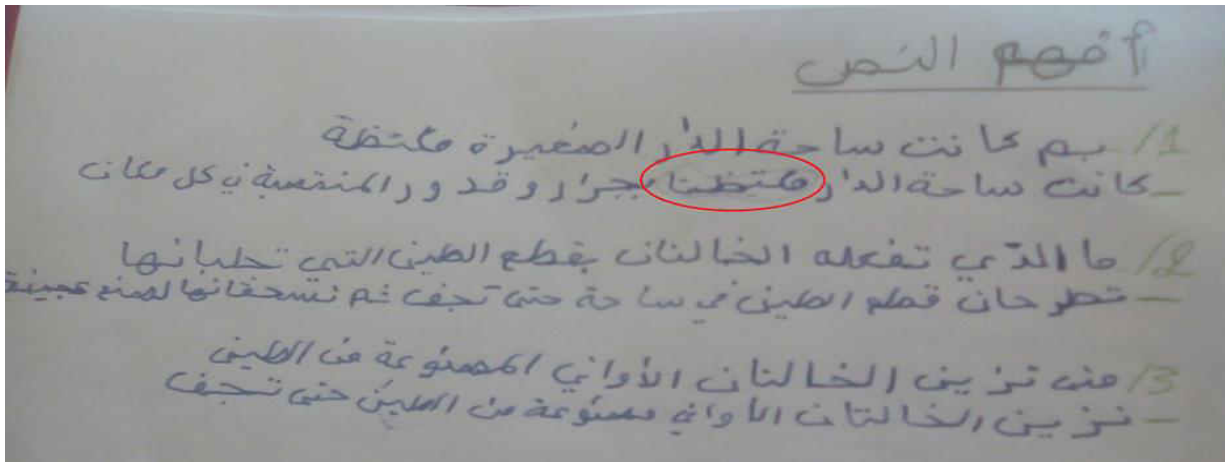 أفهم النص
1/ بم كانت ساحة الدار الصغيرة مكتظة
- كانت ساحة الدار مكتظتا بجرار و قدور المنتصبة في كل مكان
2/ ما الذي تفعله الخالتان بقطع الطين التي تجلبانها
- تطرحان قطع الطين في ساحة حتى تجف ثم تسحقانها لصنع عجينة
3/ متى تزين الخالتان الأواني المصنوعة من الطين
- تزين الخالتان الأواني مصنوعة من الطين حتى تجف